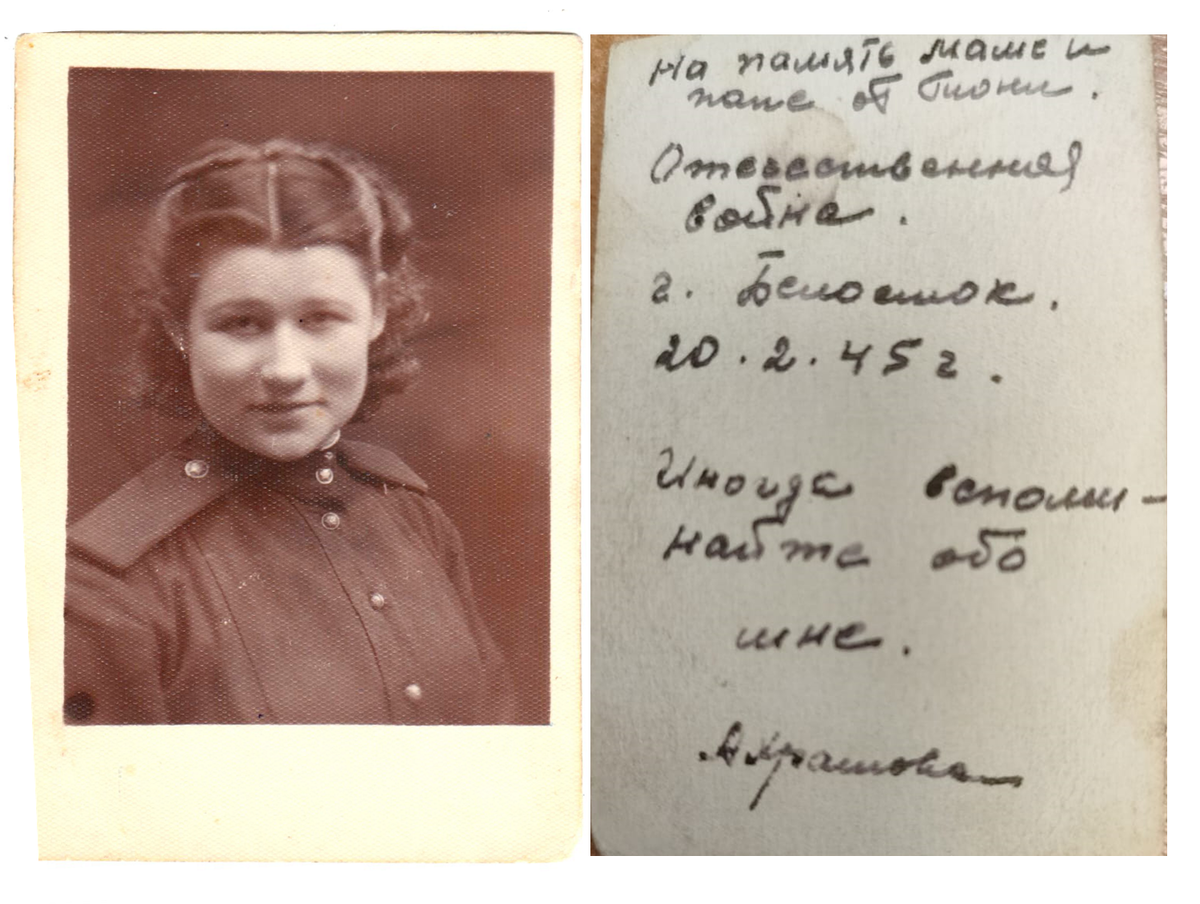 На память маме и
папе от
Отечественная
война.
г. Белосток.
20.2.45 г.
Иногда вспоми-
найте обо
мне.